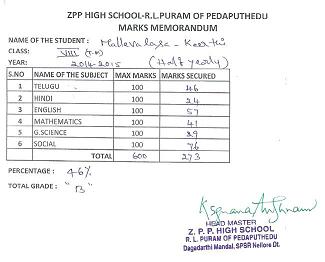 ZPP HIGH SCHOOL-R.L.PURAM OF PEDAPUTHEDU
MARKS MEMORANDUM
NAME OF THE STUDENT : Mallavalasa - Keerthi
CLASS: VIII (T.M)
YEAR: 2014-2015 (Half yearly)
S.NO NAME OF THE SUBJECT MAX MARKS MARKS SECURED
1 TELUGU 100 46
2 HINDI 100 24
3 ENGLISH 100 57
4 MATHEMATICS 100 41
5 G.SCIENCE 100 29
6 SOCIAL 100 76
TOTAL 600 273
PERCENTAGE : 46%
TOTAL GRADE : "B"
HEAD MASTER
Z. P. P. HIGH SCHOOL
R. L. PURAM OF PEDAPUTHEDU
Dagadarthi Mandal, SPSR Nellore Dt.